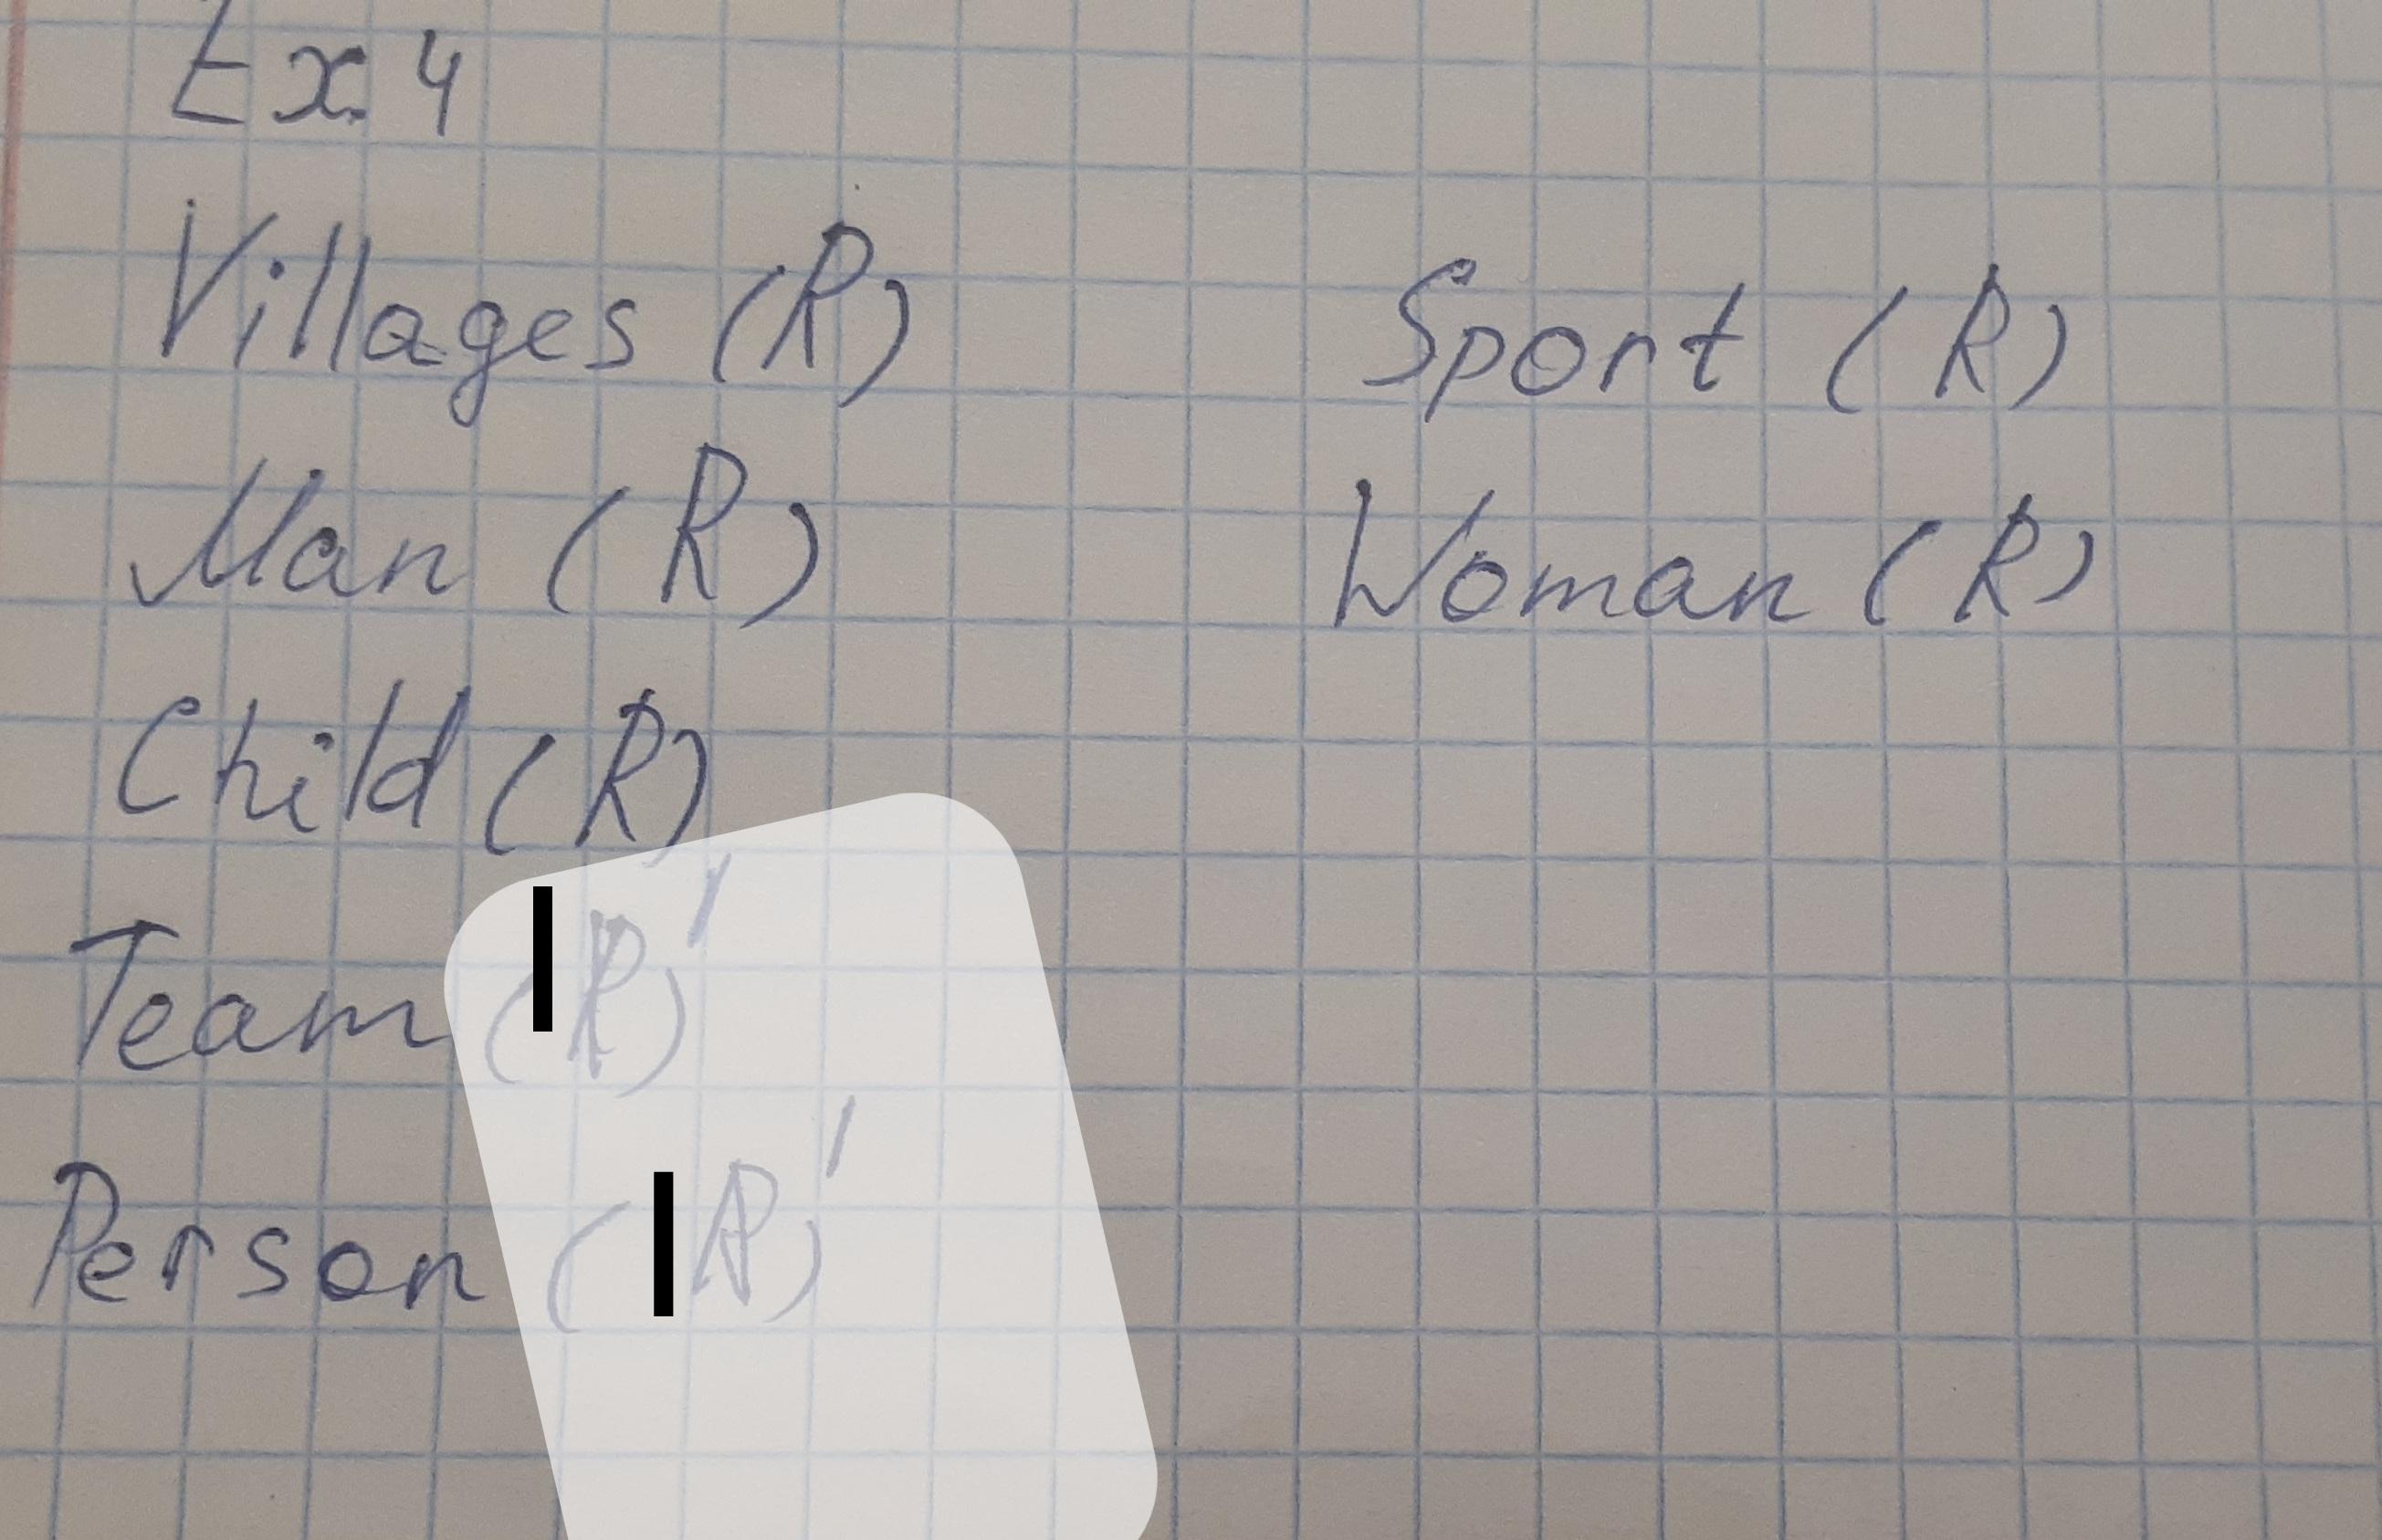 Ex. 4
Villages (R) Sport (R)
Man (R) Woman (R)
Child (R)
Team (I R)
Person (I R)